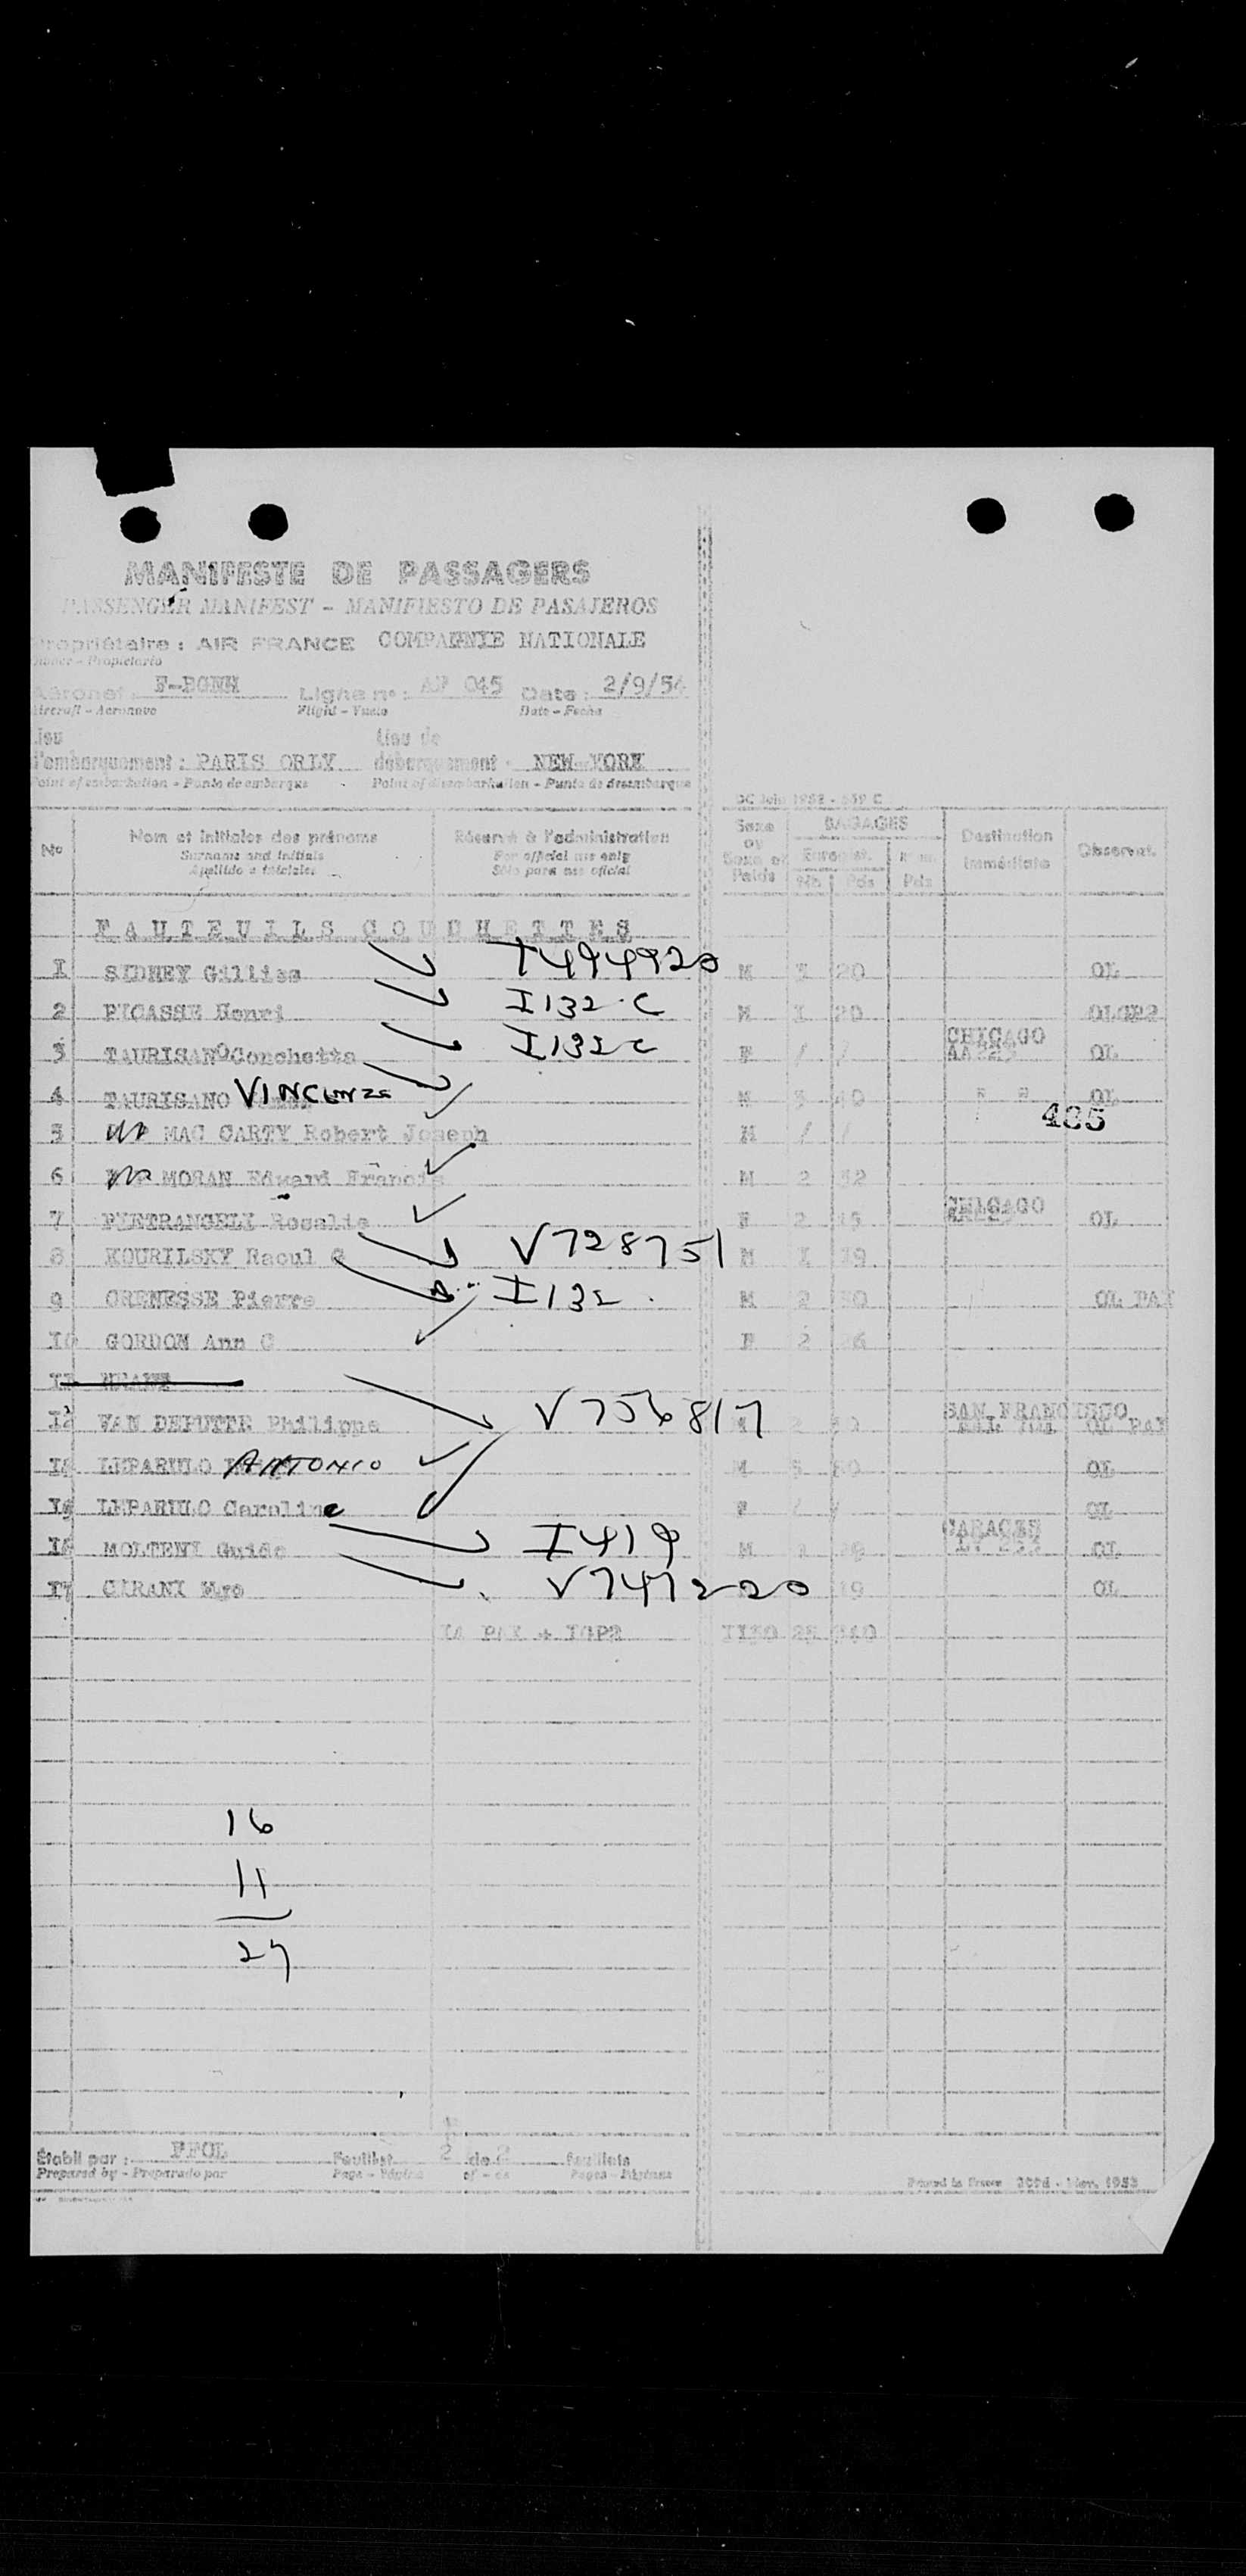 MANIFESTE DE PASSAGERS
PASSENGER MANIFEST - MANIFIESTO DE PASAJEROS
Propriétaire : AIR FRANCE COMPAGNIE NATIONALE
Owner - Propietario
Aéronef : F-BGNH Ligne n° : AF 045 Date : 2/9/54
Aircraft - Aeronave Flight - Vuelo Date - Fecha
Lieu Lieu de
d'embarquement : PARIS ORLY débarquement : NEW YORK
Point of embarkation - Punto de embarque Point of disembarkation - Punto de desembarque
Nom et initiales des prénoms Réservé à l'administration Sexe BAGAGES Destination
No Surname and initials For official use only ou Enregist. immédiate Observat.
Apellido e iniciales Sólo para uso oficial Poids Nb Pds Pds
FAUTEUILS COUCHETTES
1 SIDNEY Gillies T494920 M 1 20 OL
2 PICASSE Henri I132.C M 1 20
3 TAURISANO Conchetta I132C F / / CHICAGO OL
4 TAURISANO VINCENZE M 3 40 " " OL
485
5 MAC CARTY Robert Joseph M / /
6 MORAN Edward Francis M 2 32
7 PIETRANGELI Rosalie F 2 CHICAGO OL
8 KOURILSKY Raoul V728751 M 1 19
9 CRENESSE Pierre I132. M 2 OL PAX
10 GORDON Ann C F 2 26
12 VAN DEPUTTE Philippe V756817 SAN FRANCISCO OL PAX
LEPARULO ANTONIO M OL
LEPARULO Caroline F / / OL
MOLTENI Guido I419 M CARACAS OL
17 CIRANI V747220 19 OL
16
11
27
Établi par : Feuillet 2 de 2 feuillets
Prepared by - Preparado por Page - Página of - de Pages - Páginas
Printed in France